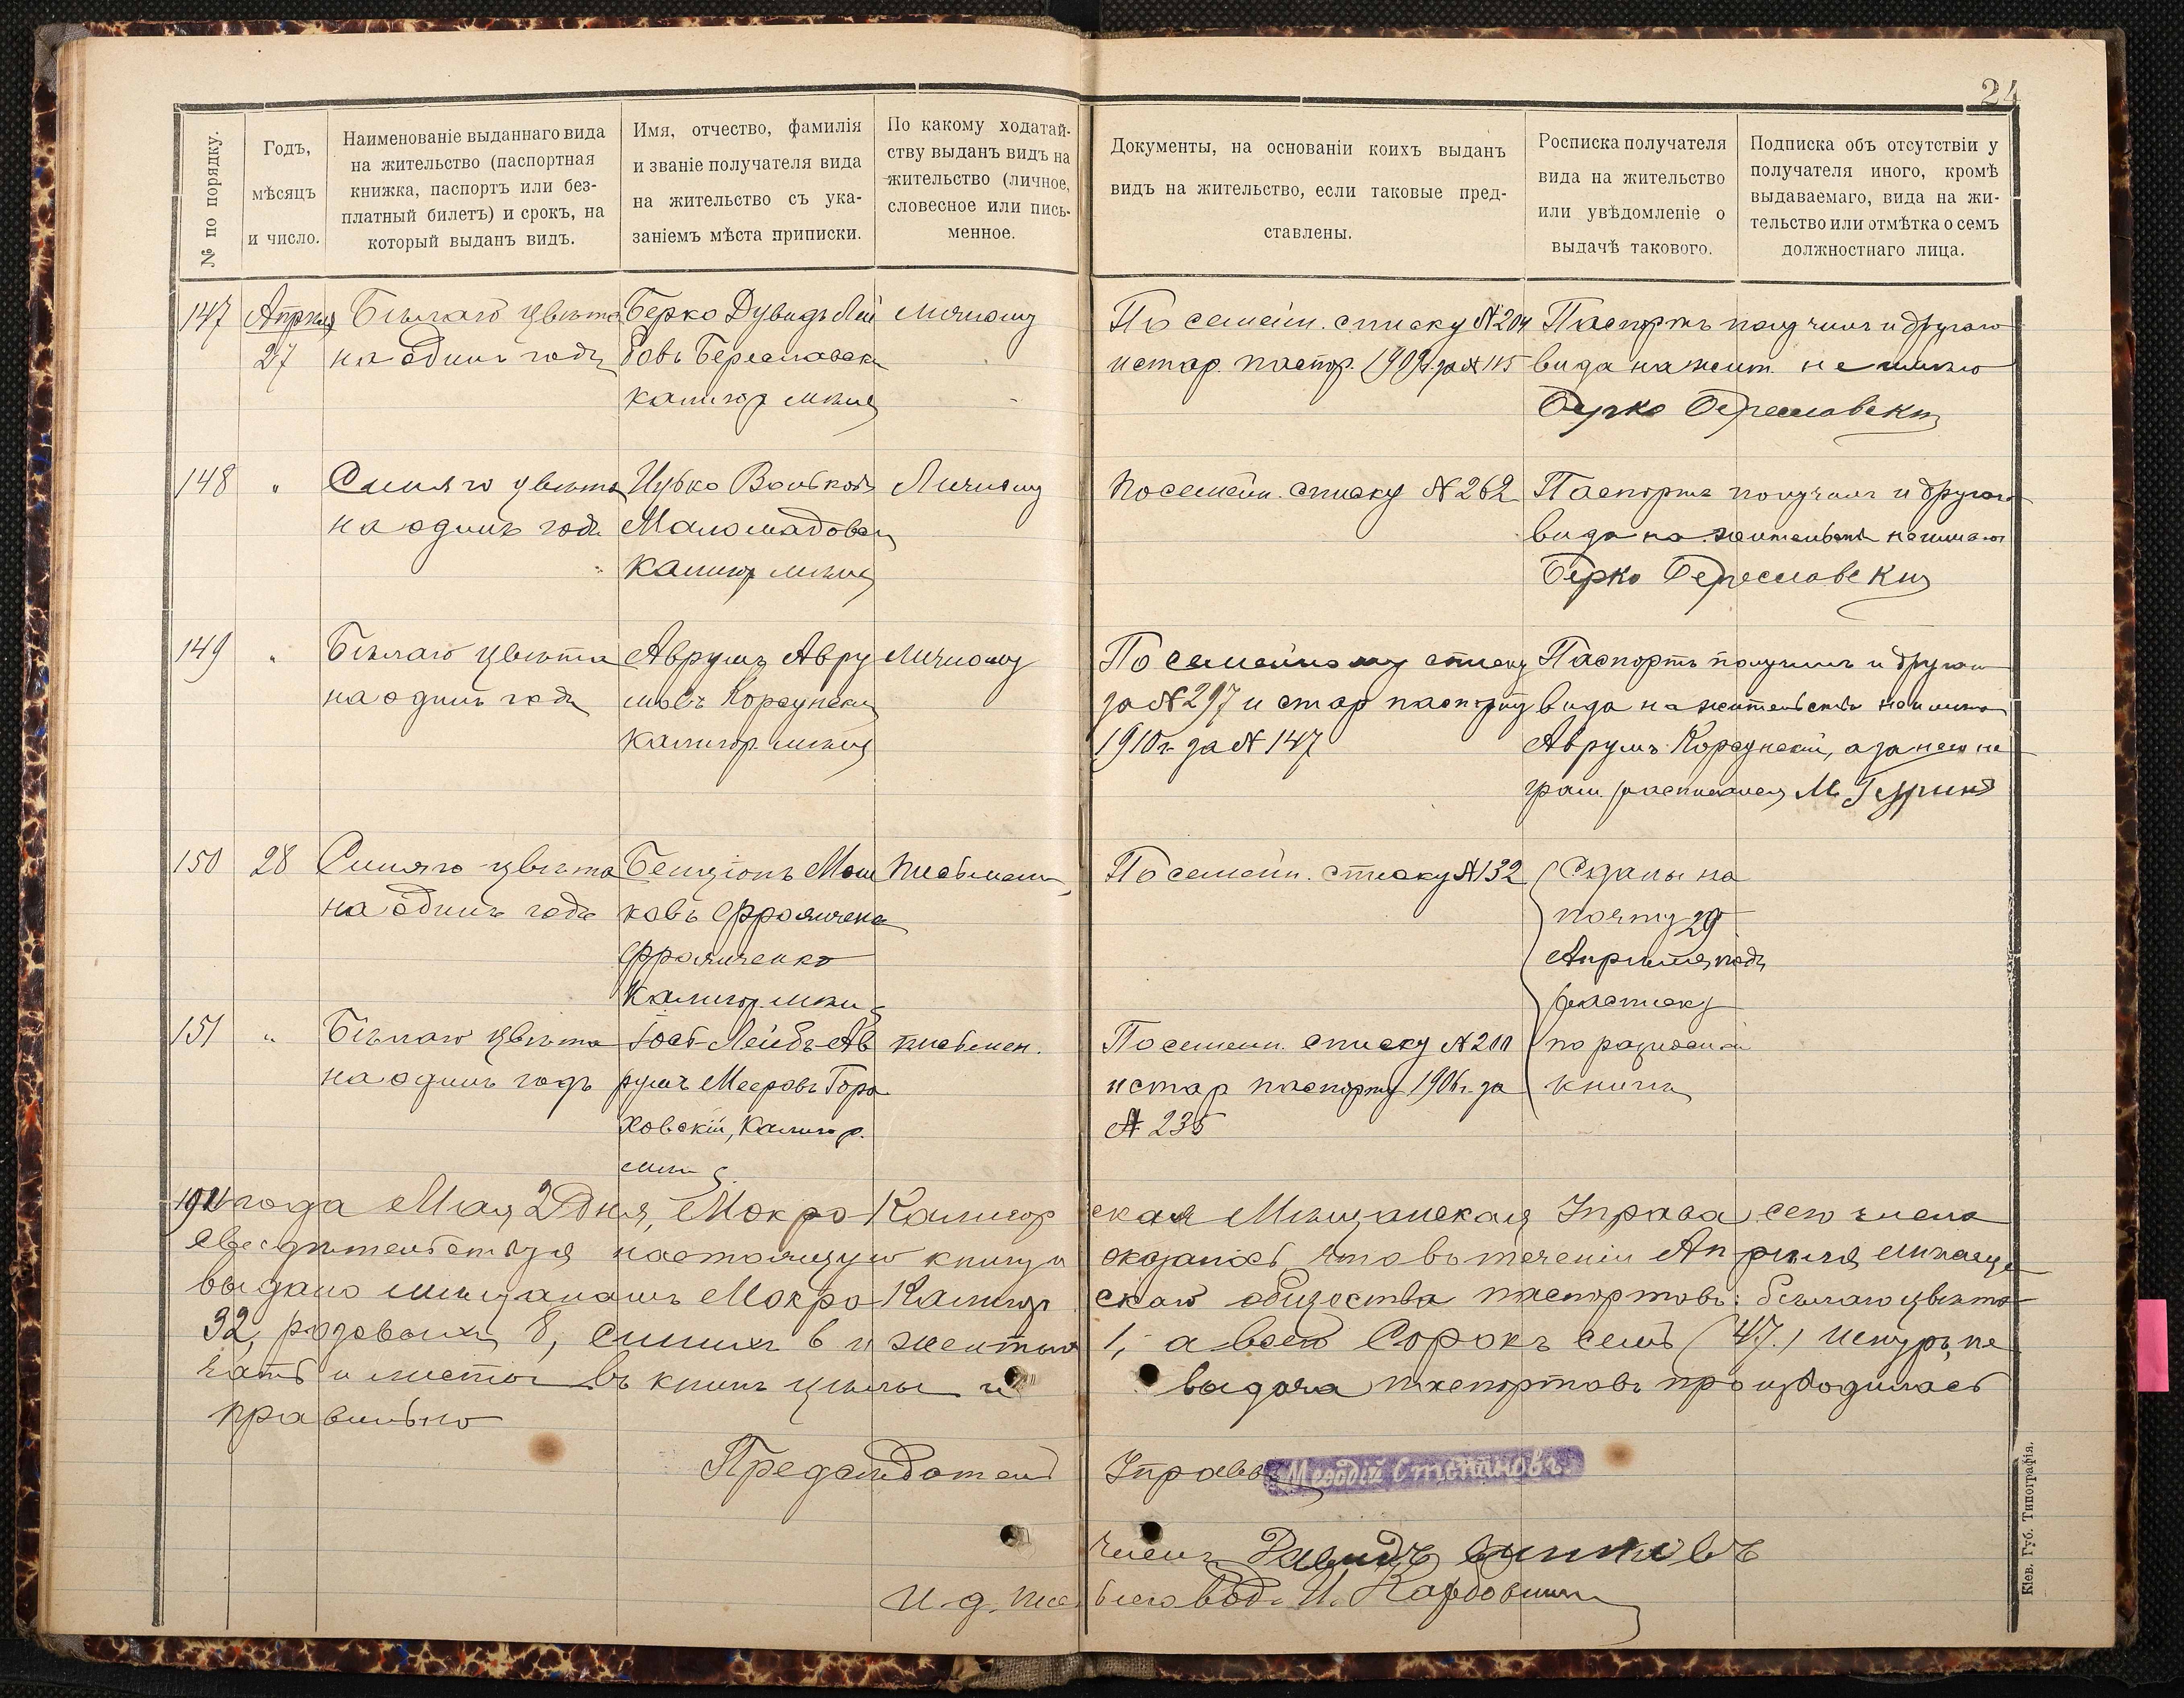 24
№ по порядку.
Годъ,
мѣсяцъ
и число.
Наименованіе выданнаго вида
на жительство (паспортная
книжка, паспортъ или без-
платный билетъ) и срокъ, на
который выданъ видъ.
Имя, отчество, фамилія
и званіе получателя вида
на жительство съ ука-
заніемъ мѣста приписки.
По какому ходатай-
ству выданъ видъ на
жительство (личное,
словесное или пись-
менное.
Документы, на основаніи коихъ выданъ
видъ на жительство, если таковые пред-
ставлены.
Росписка получателя
вида на жительство
или увѣдомленіе о
выдачѣ такового.
Подписка объ отсутствіи у
получателя иного, кромѣ
выдаваемаго, вида на жи-
тельство или отмѣтка о семъ
должностнаго лица.
147
Апрѣля
27
Бѣлаго цвѣта
на одинъ годъ
Берко Дувидъ Лей
бовъ Береславск
калигор мѣщ
личному
По семейн. списку № 204
и стар. паспор. 1909 г. за № 115
Паспортъ получилъ и другаго
вида на жит. не имѣю
Берко Береславски
148
"
Синяго цвѣта
на одинъ годъ
Волькովъ
Калигор мѣщ
Личному
По семейн. списку № 262
Паспортъ получилъ и другаго
вида на жительство не имѣю
Берко Береславски
149
"
Бѣлаго цвѣта
на одинъ годъ
Аврумъ Авру
мовъ Корсунски
Калигор. мѣщ
личному
По семейному списку
за № 297 и стар паспорту
1910 г. за № 147
Паспортъ получилъ и другаго
вида на жительство не имѣю
Аврумъ Корсунскій, а за него не
грам. расписался М.
150
28
Синяго цвѣта
на одинъ годъ
Бенціонъ Мош
ковъ
Калигор. мѣщ
письмен
По семейн. списку № 132
Сданы на
почту 29
Апрѣля подъ
расписку
по разносной
книгѣ
151
"
Бѣлаго цвѣта
на одинъ годъ
Іось Лейбъ Ав
румъ Мееровъ Горо
ховскій, Калигор.
мѣщ
письмен.
По семейн. списку № 211
и стар паспорту 1906 г. за
№ 235
1911 года Мая 2 дня, Мокро Калигор ская Мѣщанская Управа, сего числа
свидѣтельствуя настоящую книгу оказалось что въ теченіи Апрѣля мѣсяца
выдано мѣщанамъ Мокро Калигор скаго общества паспортовъ: бѣлаго цвѣта
32, розовыхъ 8, синихъ 6 и желтыхъ 1, а всего Сорокъ семь (47.) шнуръ, пе
чать и листы въ книгѣ цѣлы и выдача паспортовъ производилась
правильно
Предсѣдатель Управы Мефодій Степановъ
Членъ
И. д. письмовод. И.
Кіев. Губ. Типографія.